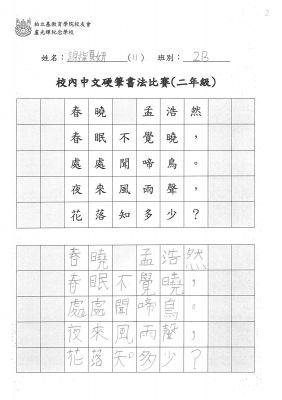 2
柏立基教育學院校友會
盧光輝紀念學校
姓名：(11) 班別：2B
校內中文硬筆書法比賽(二年級)
春曉 孟浩然
春眠不覺曉，
處處聞啼鳥。
夜來風雨聲，
花落知多少？
春曉 孟浩然
春眠不覺曉，
處處聞啼鳥。
夜來風雨聲，
花落知多少？